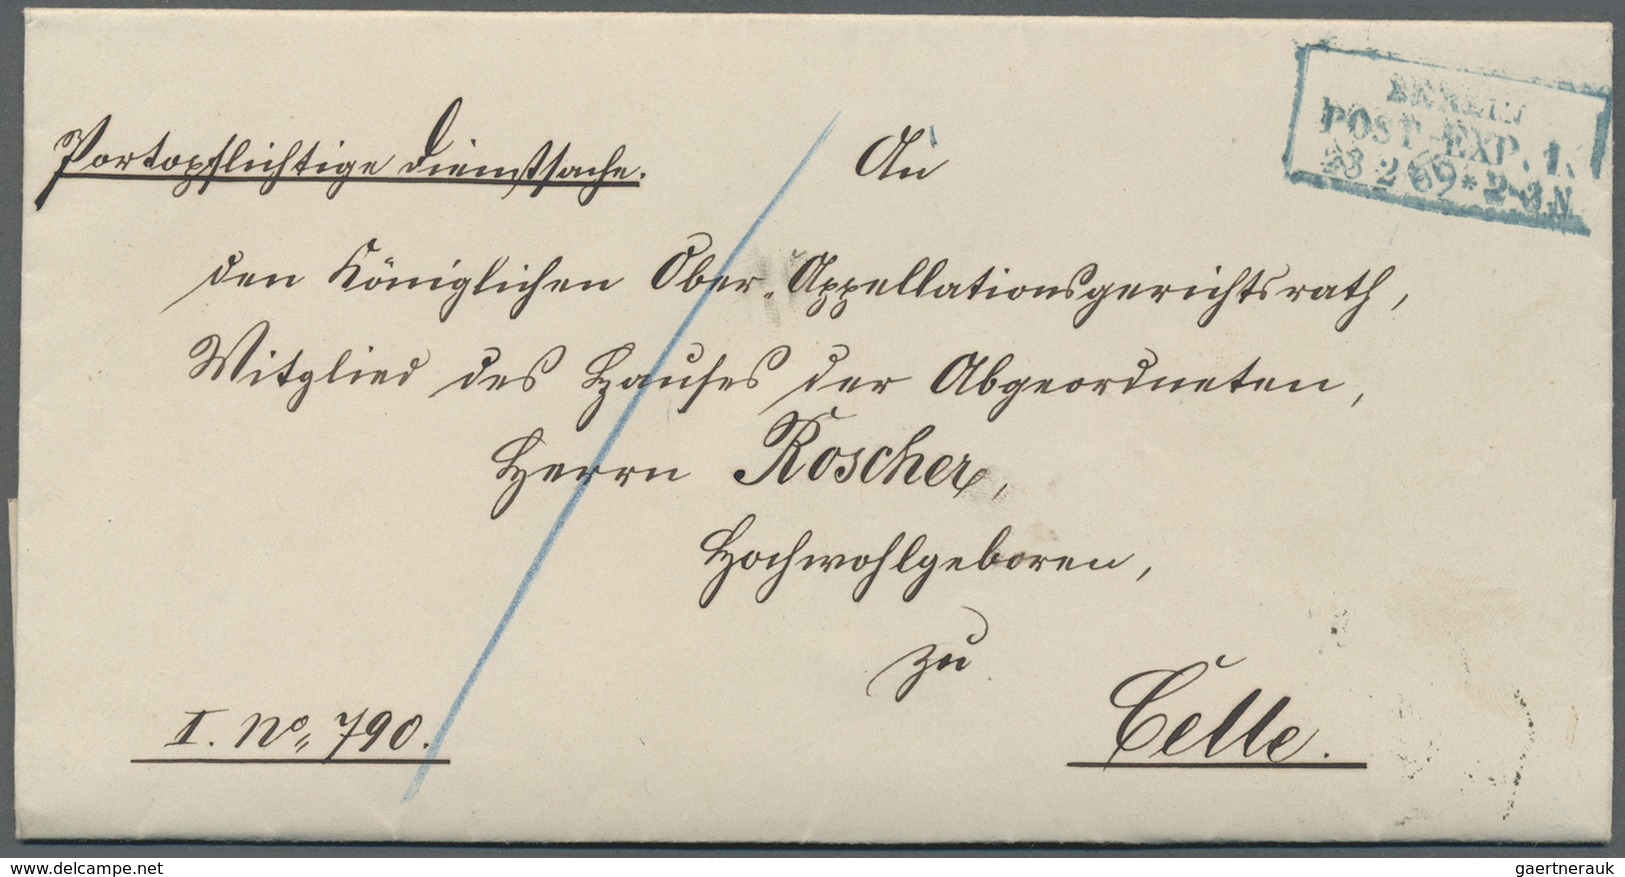 Portopflichtige Dienstsache.
An
BERLIN
POST-EXP. 1.
23 2 69 * 2-3 N
den Königlichen Ober-Appellationsgerichtsrath,
Mitglied des Hauses der Abgeordneten,
Herrn Roscher,
Hochwohlgeboren,
zu
Celle.
I. No. 790.
delcampe.net
gaertnerauk